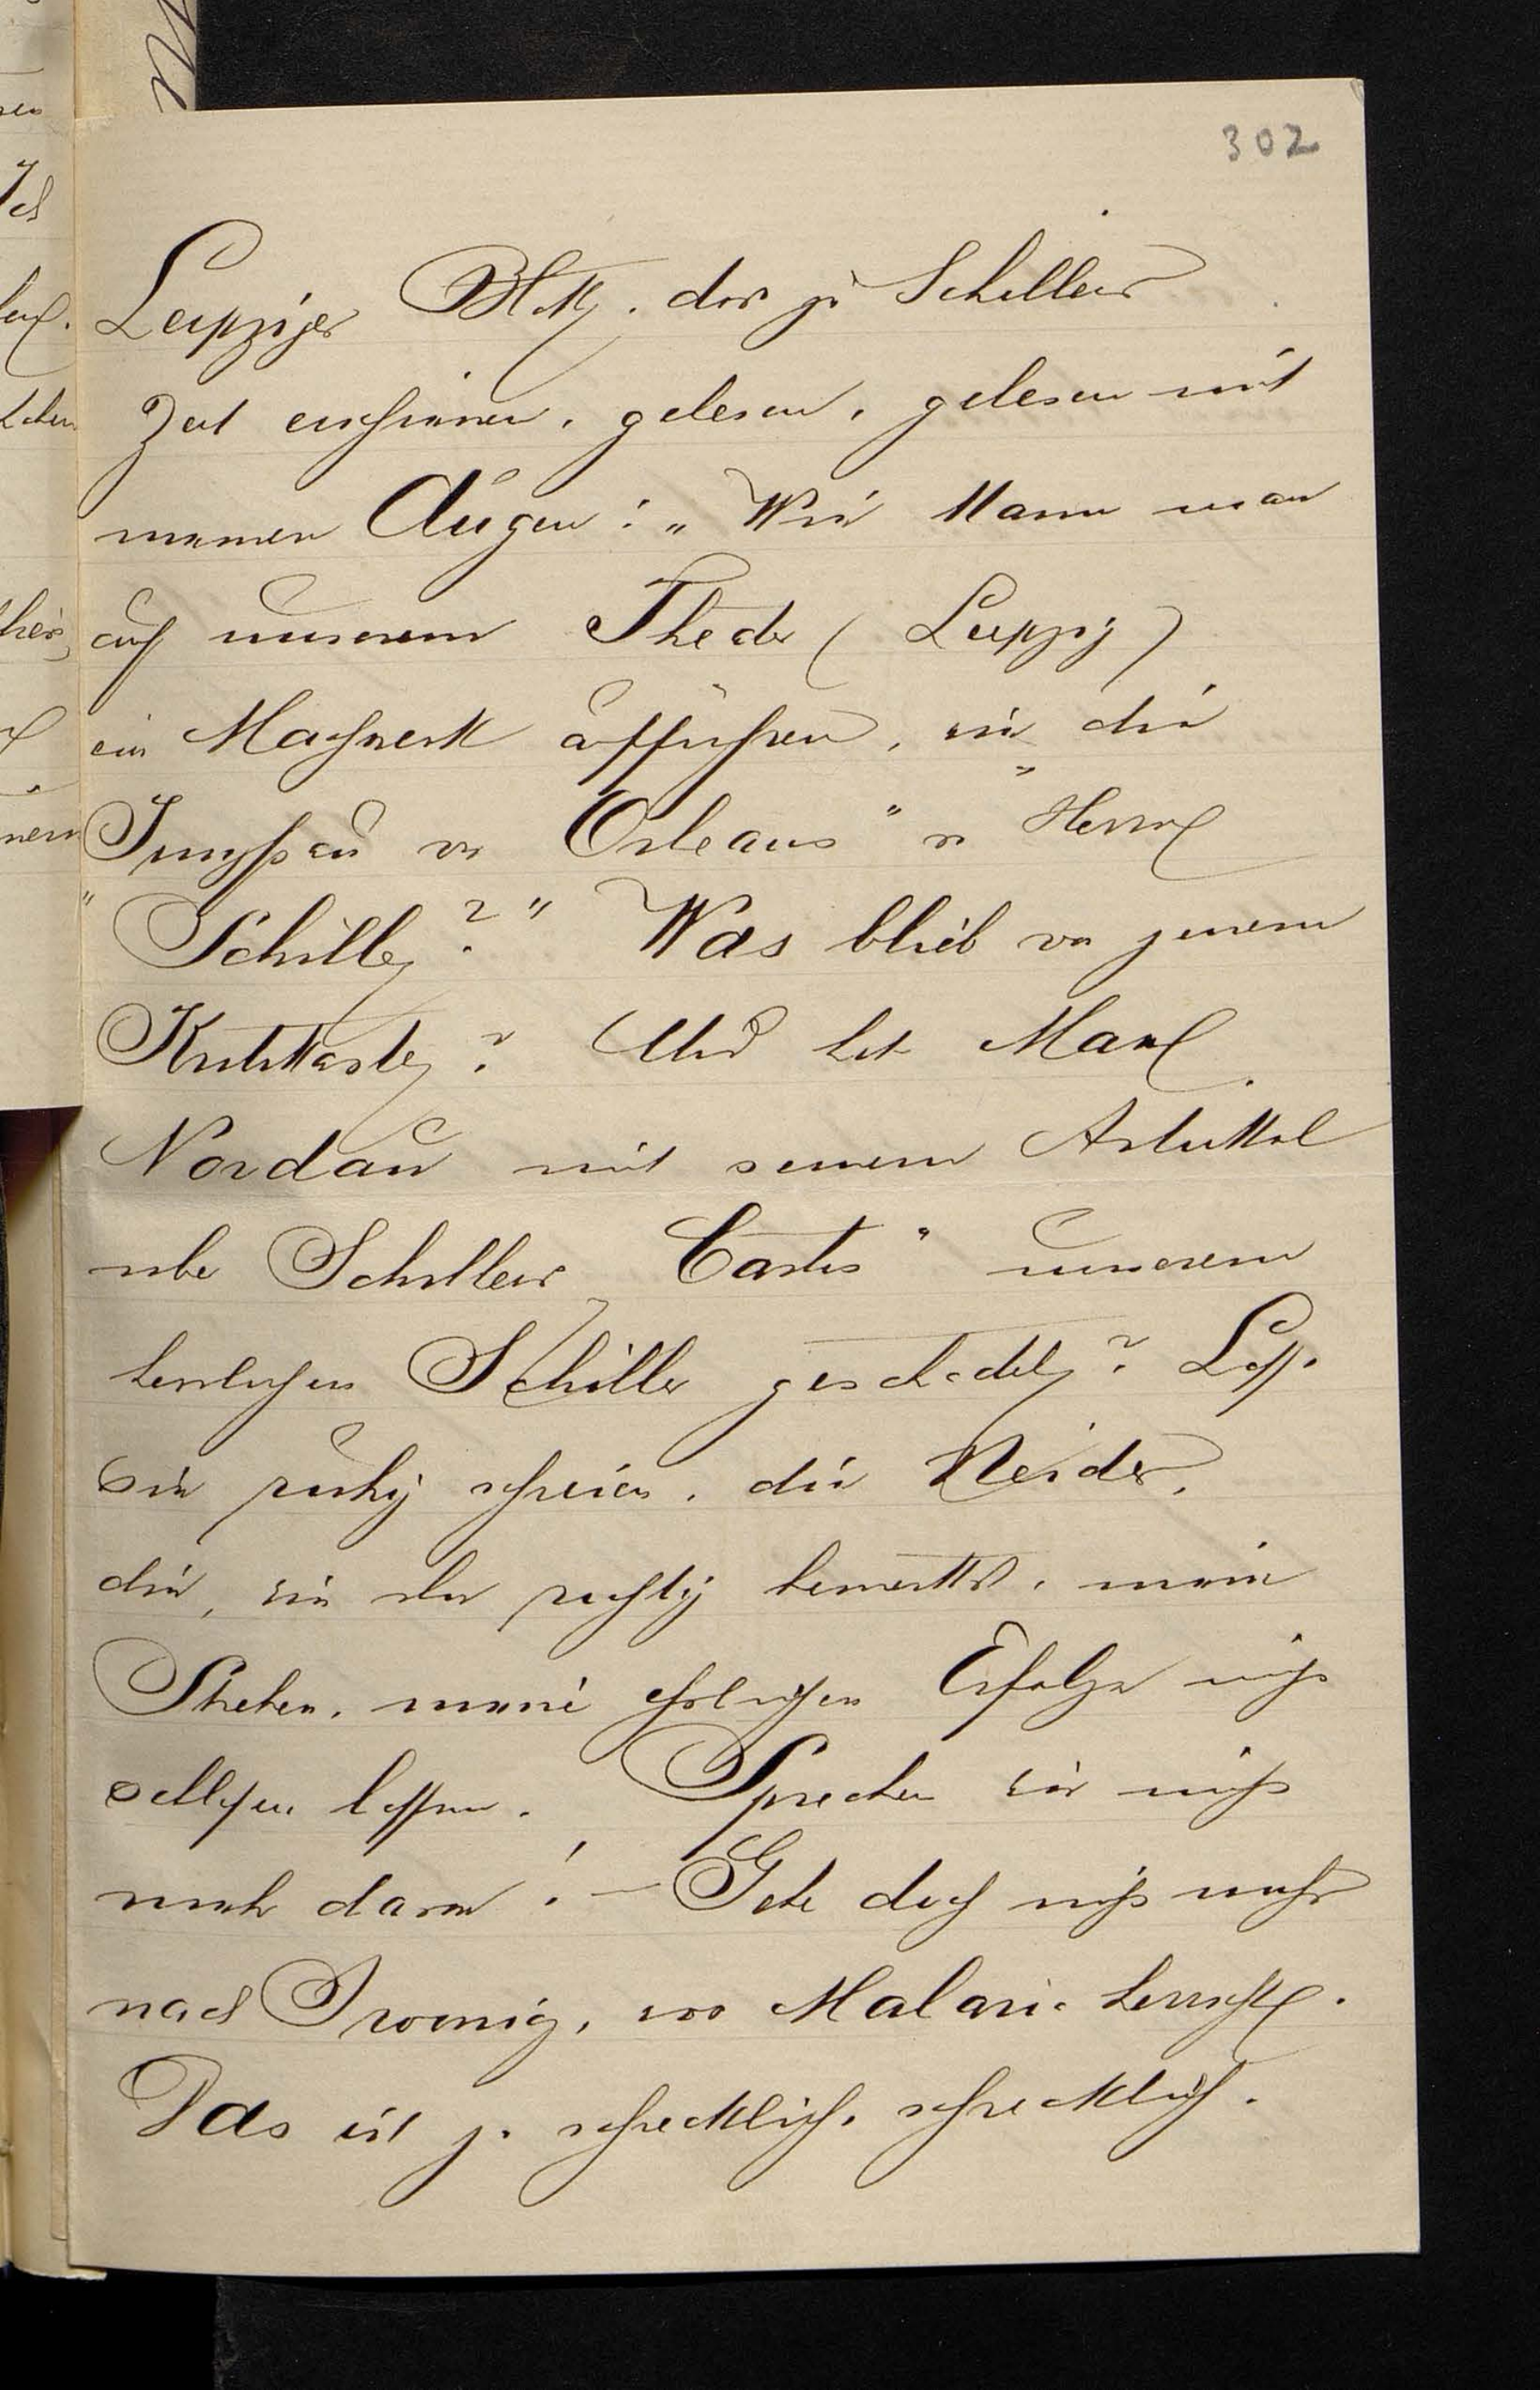 302
Leipziger Blatt, das zu Schillers
Zeit erschienen, gelesen, gelesen mit
meinen Augen: „Wie kann man
auf unserem Theater (Leipzig)
ein Machwerk aufführen, wie die
„Jungfrau von Orleans" von Herrn
„Schiller?" Was blieb von jenem
Kritikaster? Und hat Max
Nordau mit seinem Artikel
über Schillers „Carlos" unserem
herrlichen Schiller geschadet? Lass
sie ruhig schreien, die Neider,
die, wie Du richtig bemerkst, mein
Streben, meine ehrlichen Erfolge nicht
schlafen lassen. Sprechen wir nicht
mehr davon! — Gehe doch nicht mehr
nach Iwonicz, wo Malaria herrscht.
Das ist ja schrecklich, schrecklich.